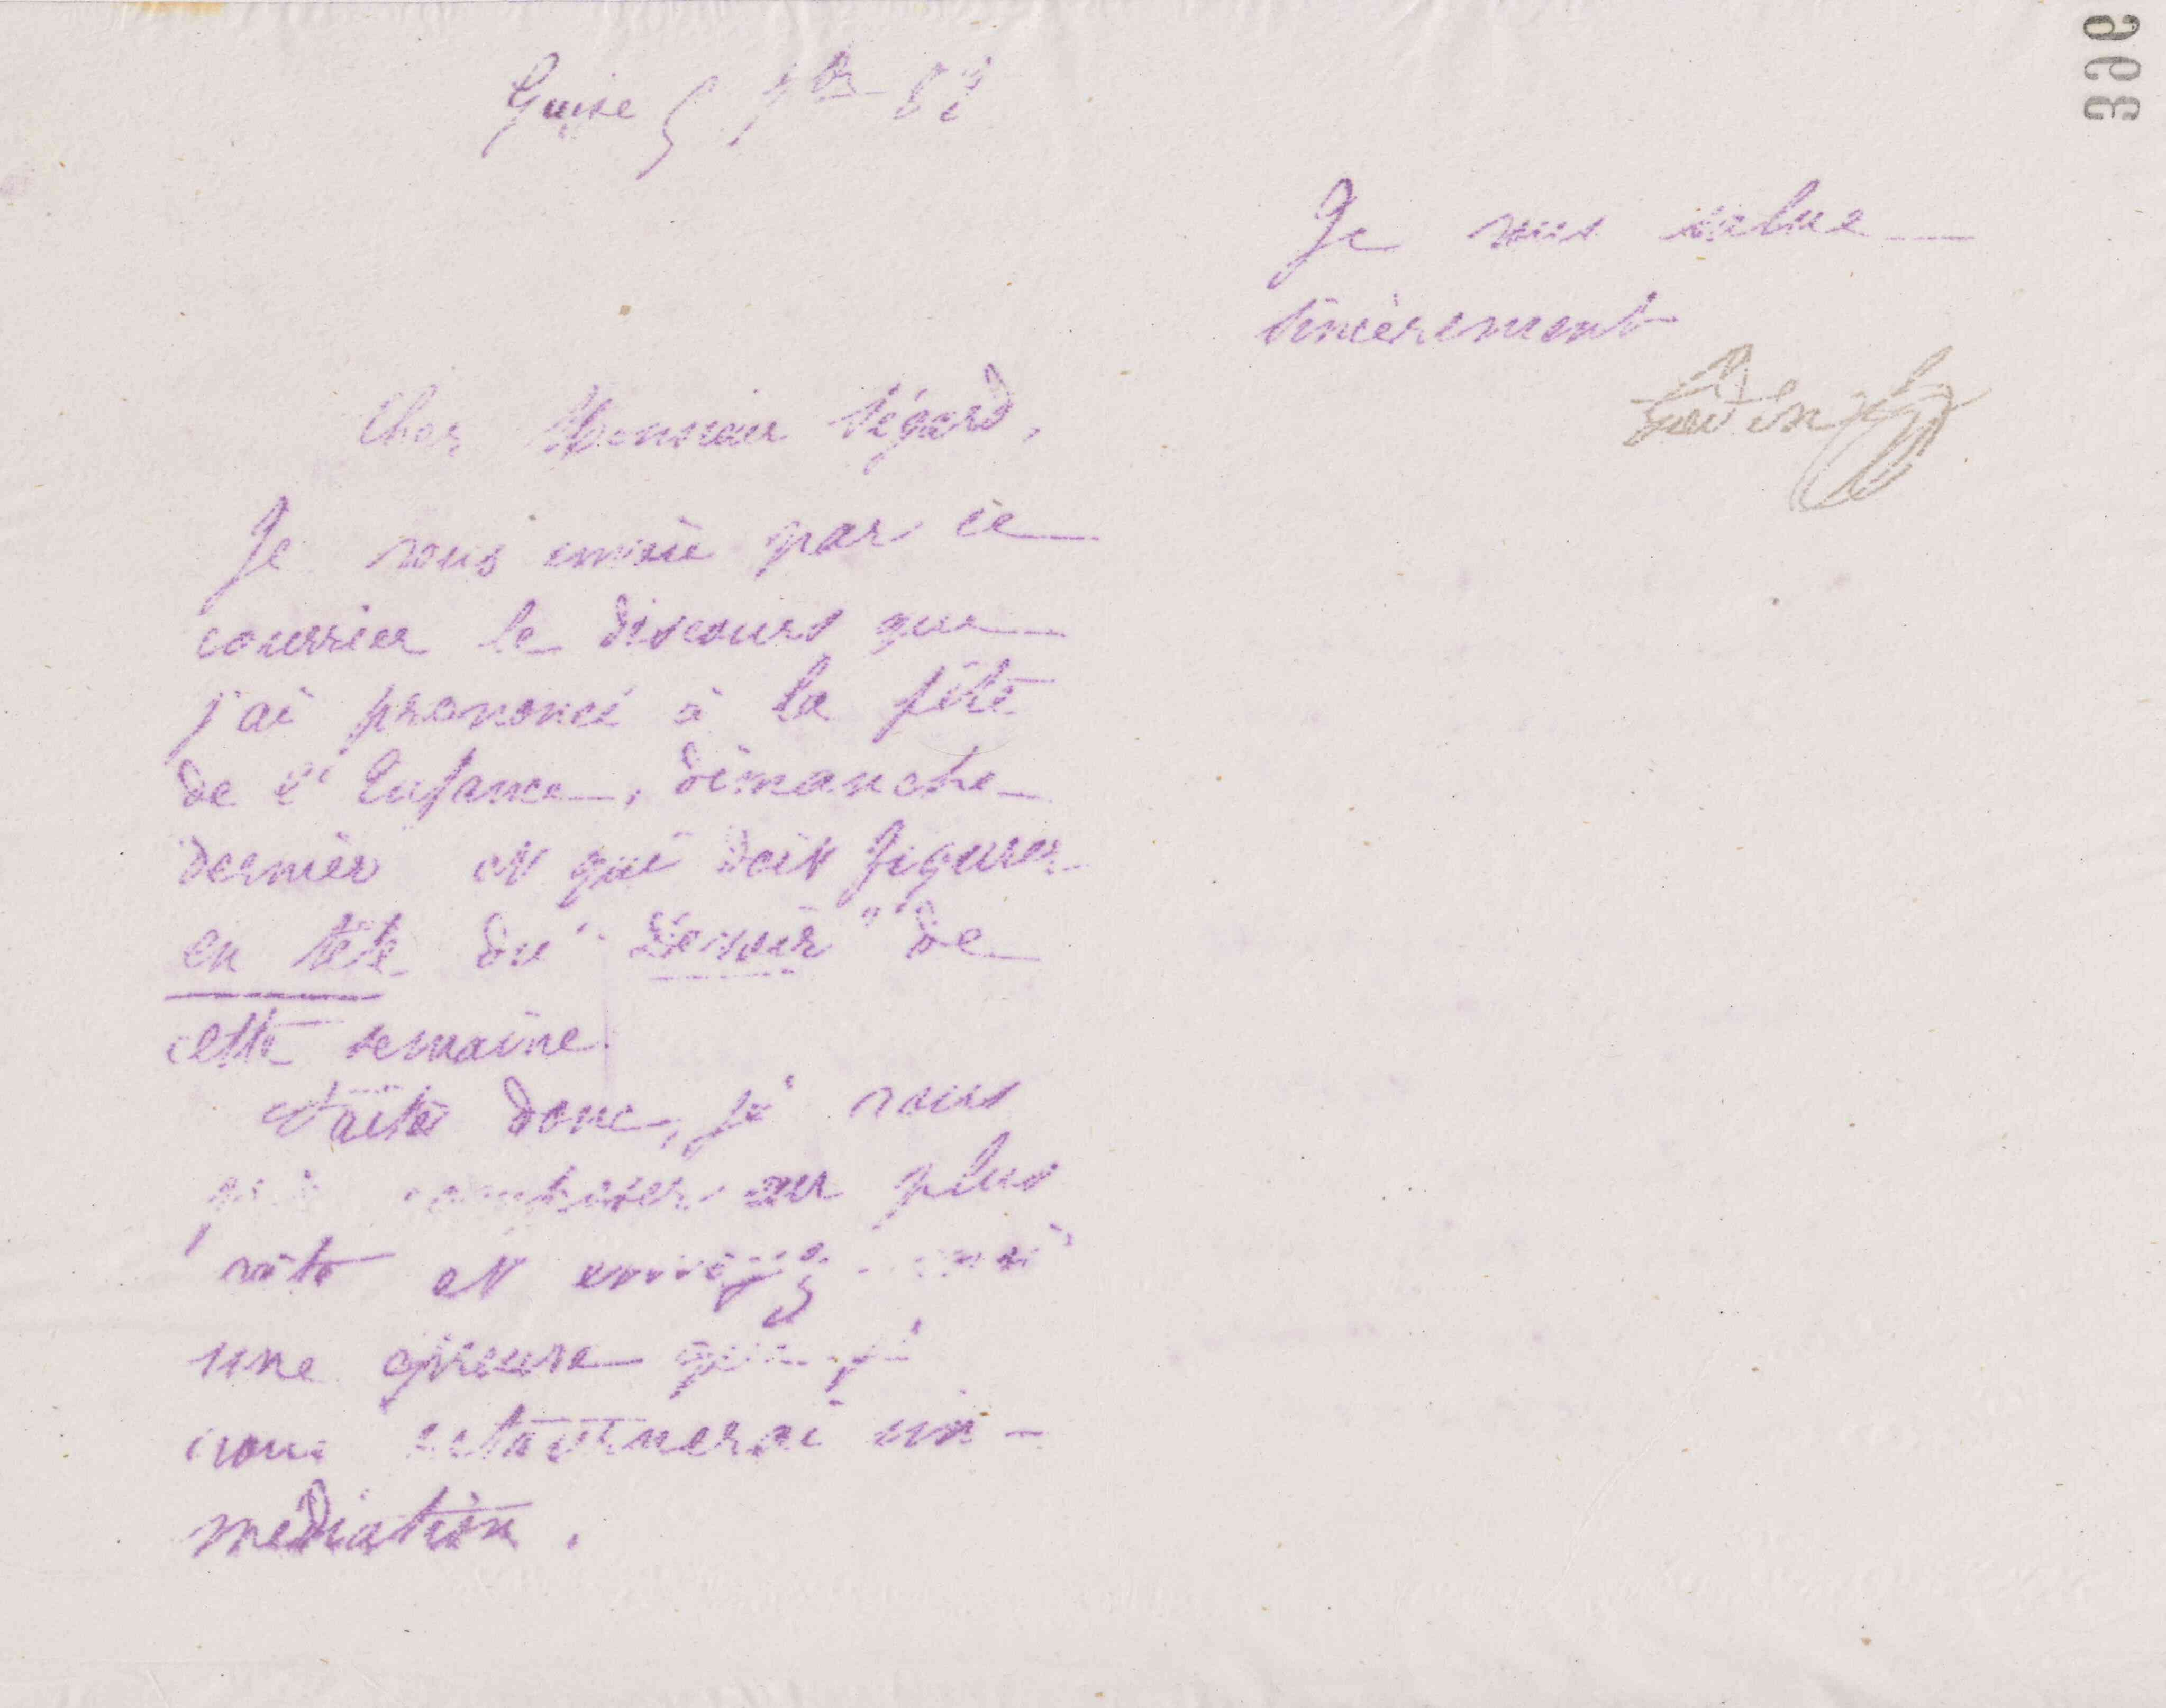 Guise 5 7bre 82
Cher Monsieur Ségard,
Je vous envoie par ce
courrier le discours que
j'ai prononcé à la fête
de l'Enfance, dimanche
dernier et qui doit figurer
en tête du "Devoir" de
cette semaine.
Faites donc, je vous
prie composer au plus
vite et envoyez-moi
une épreuve que je
vous retournerai im-
médiation.
Je vous salue
sincèrement
Godin
396